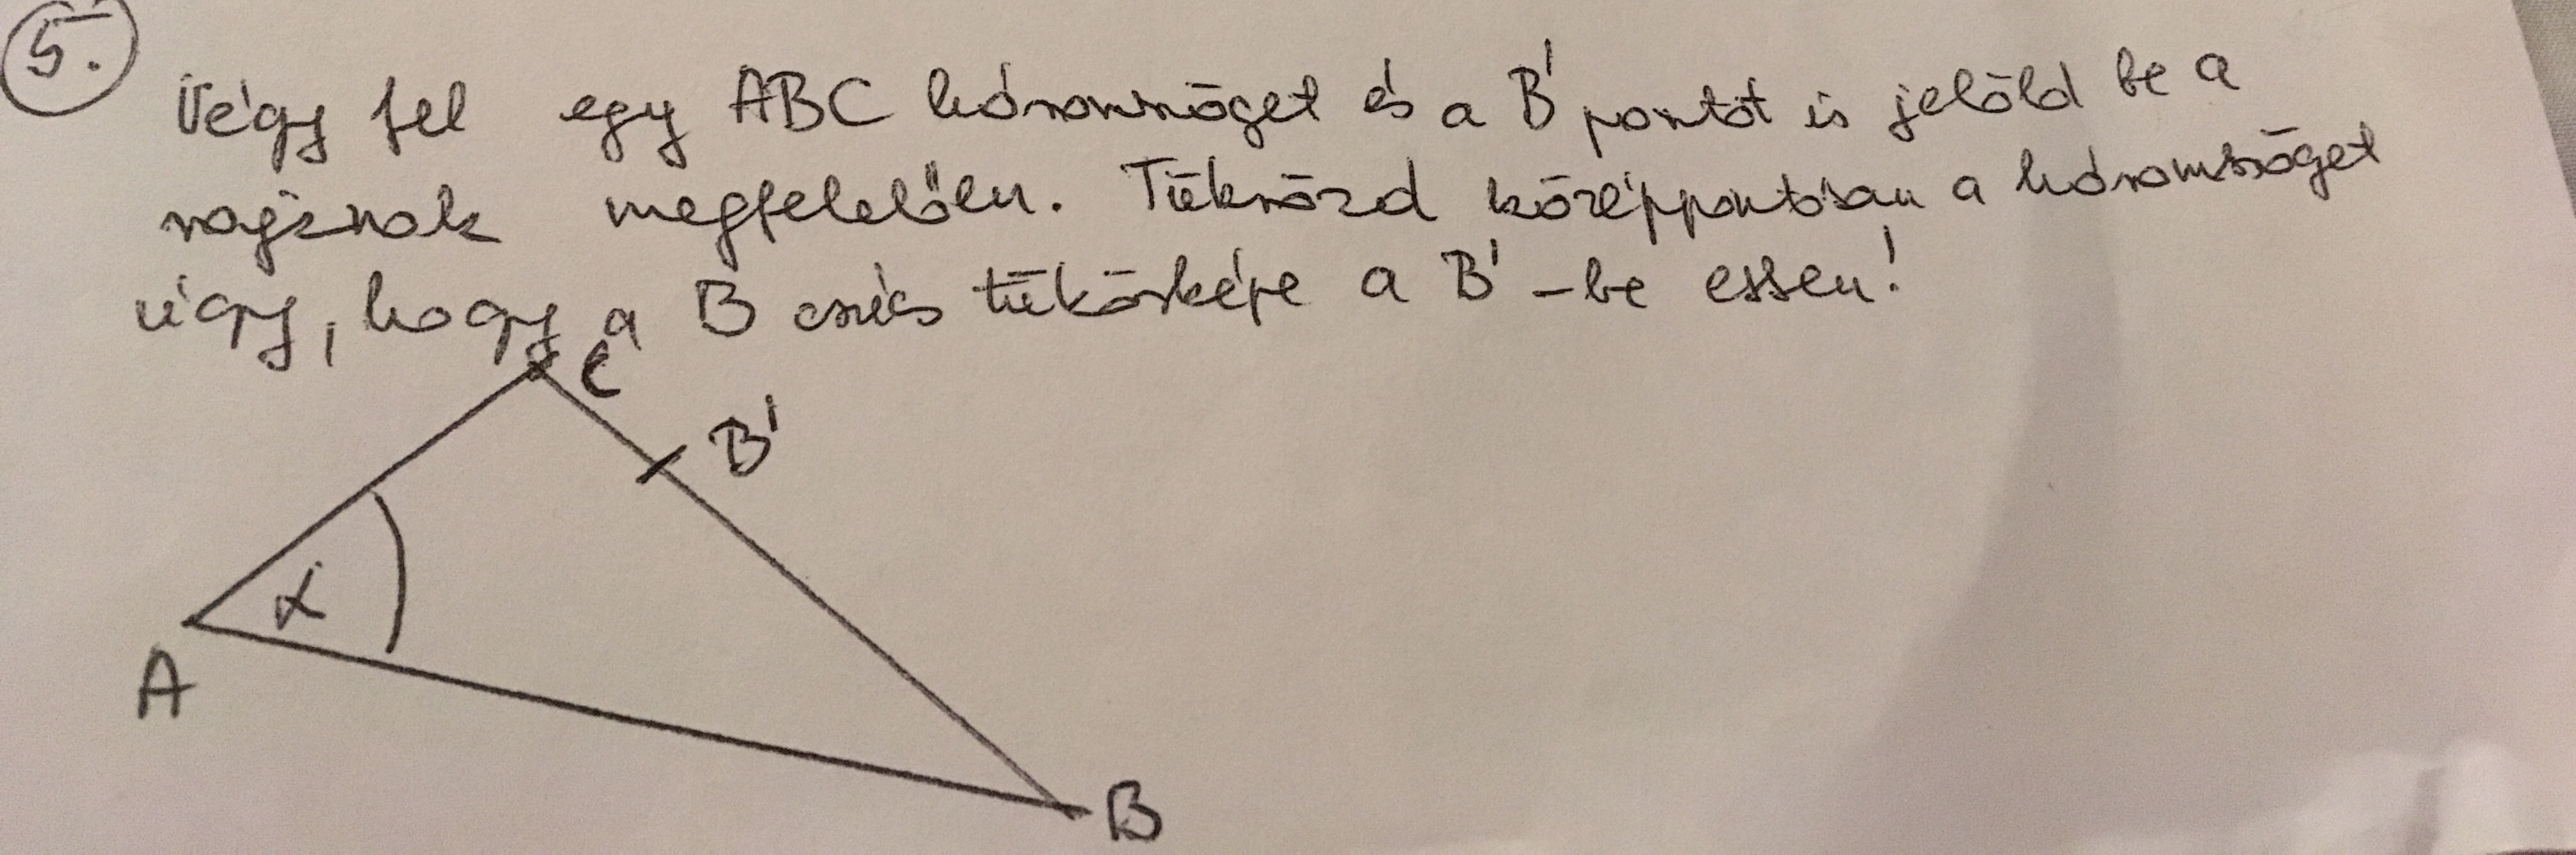 5.
Végy fel egy ABC háromszöget és a B' pontot is jelöld be a
rajznak megfelelően. Tükrözd középpontosan a háromszöget
úgy, hogy a B csúcs tükörképe a B'-be essen!
C
B'
α
A
B